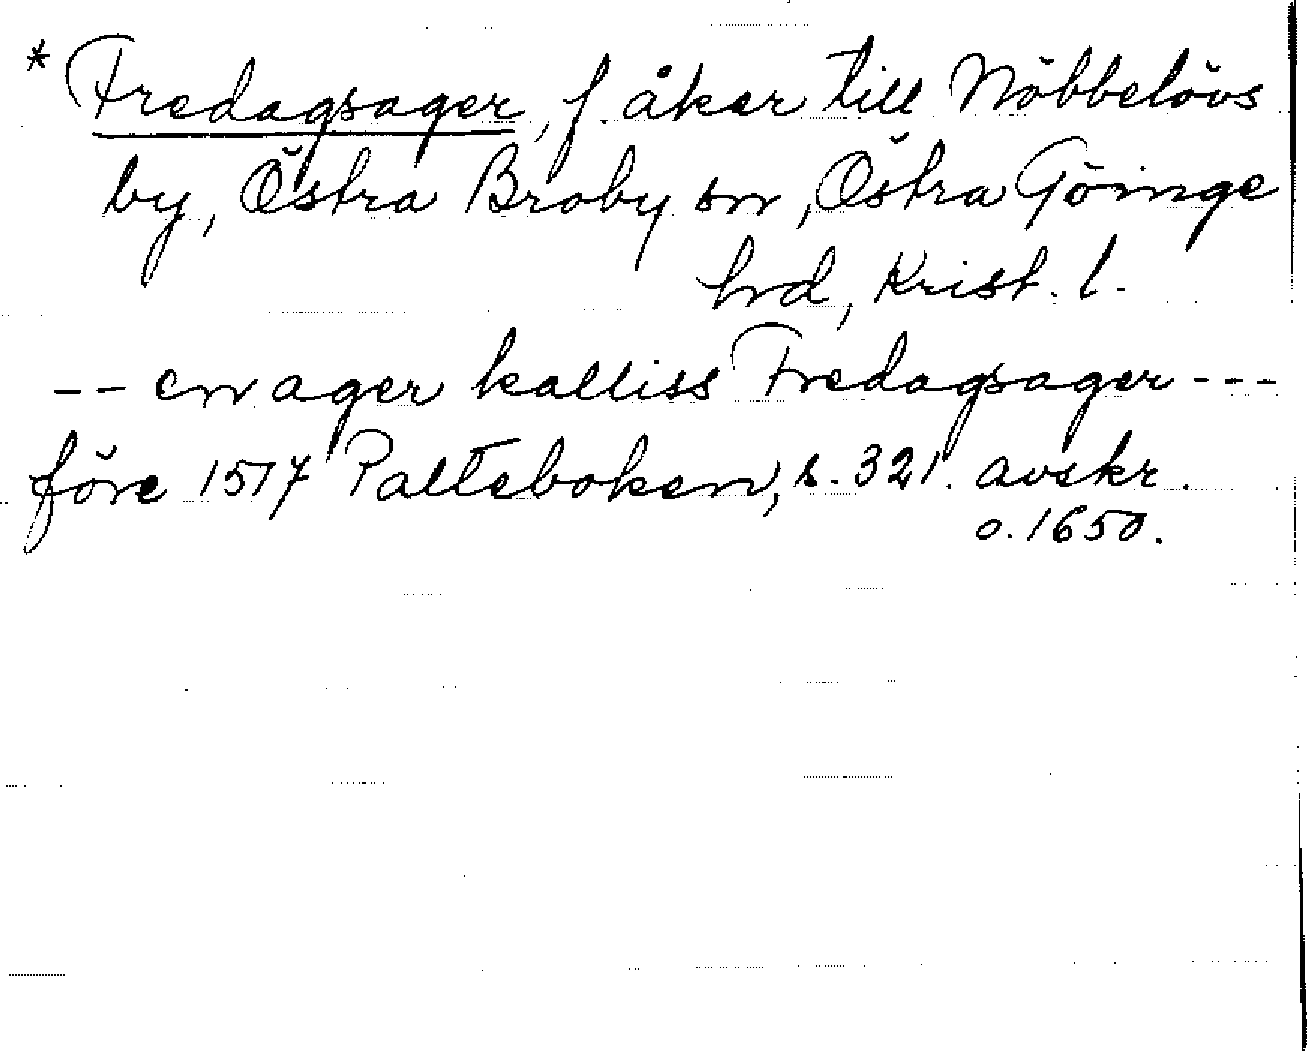 * Fredagsager, f. åker till Nöbbelövs
by, Östra Broby sn, Östra Göinge
hrd, Krist. l.
-- en ager kalliss Fredagsager ---
före 1517 Palteboken, s. 321. avskr.
o. 1650.